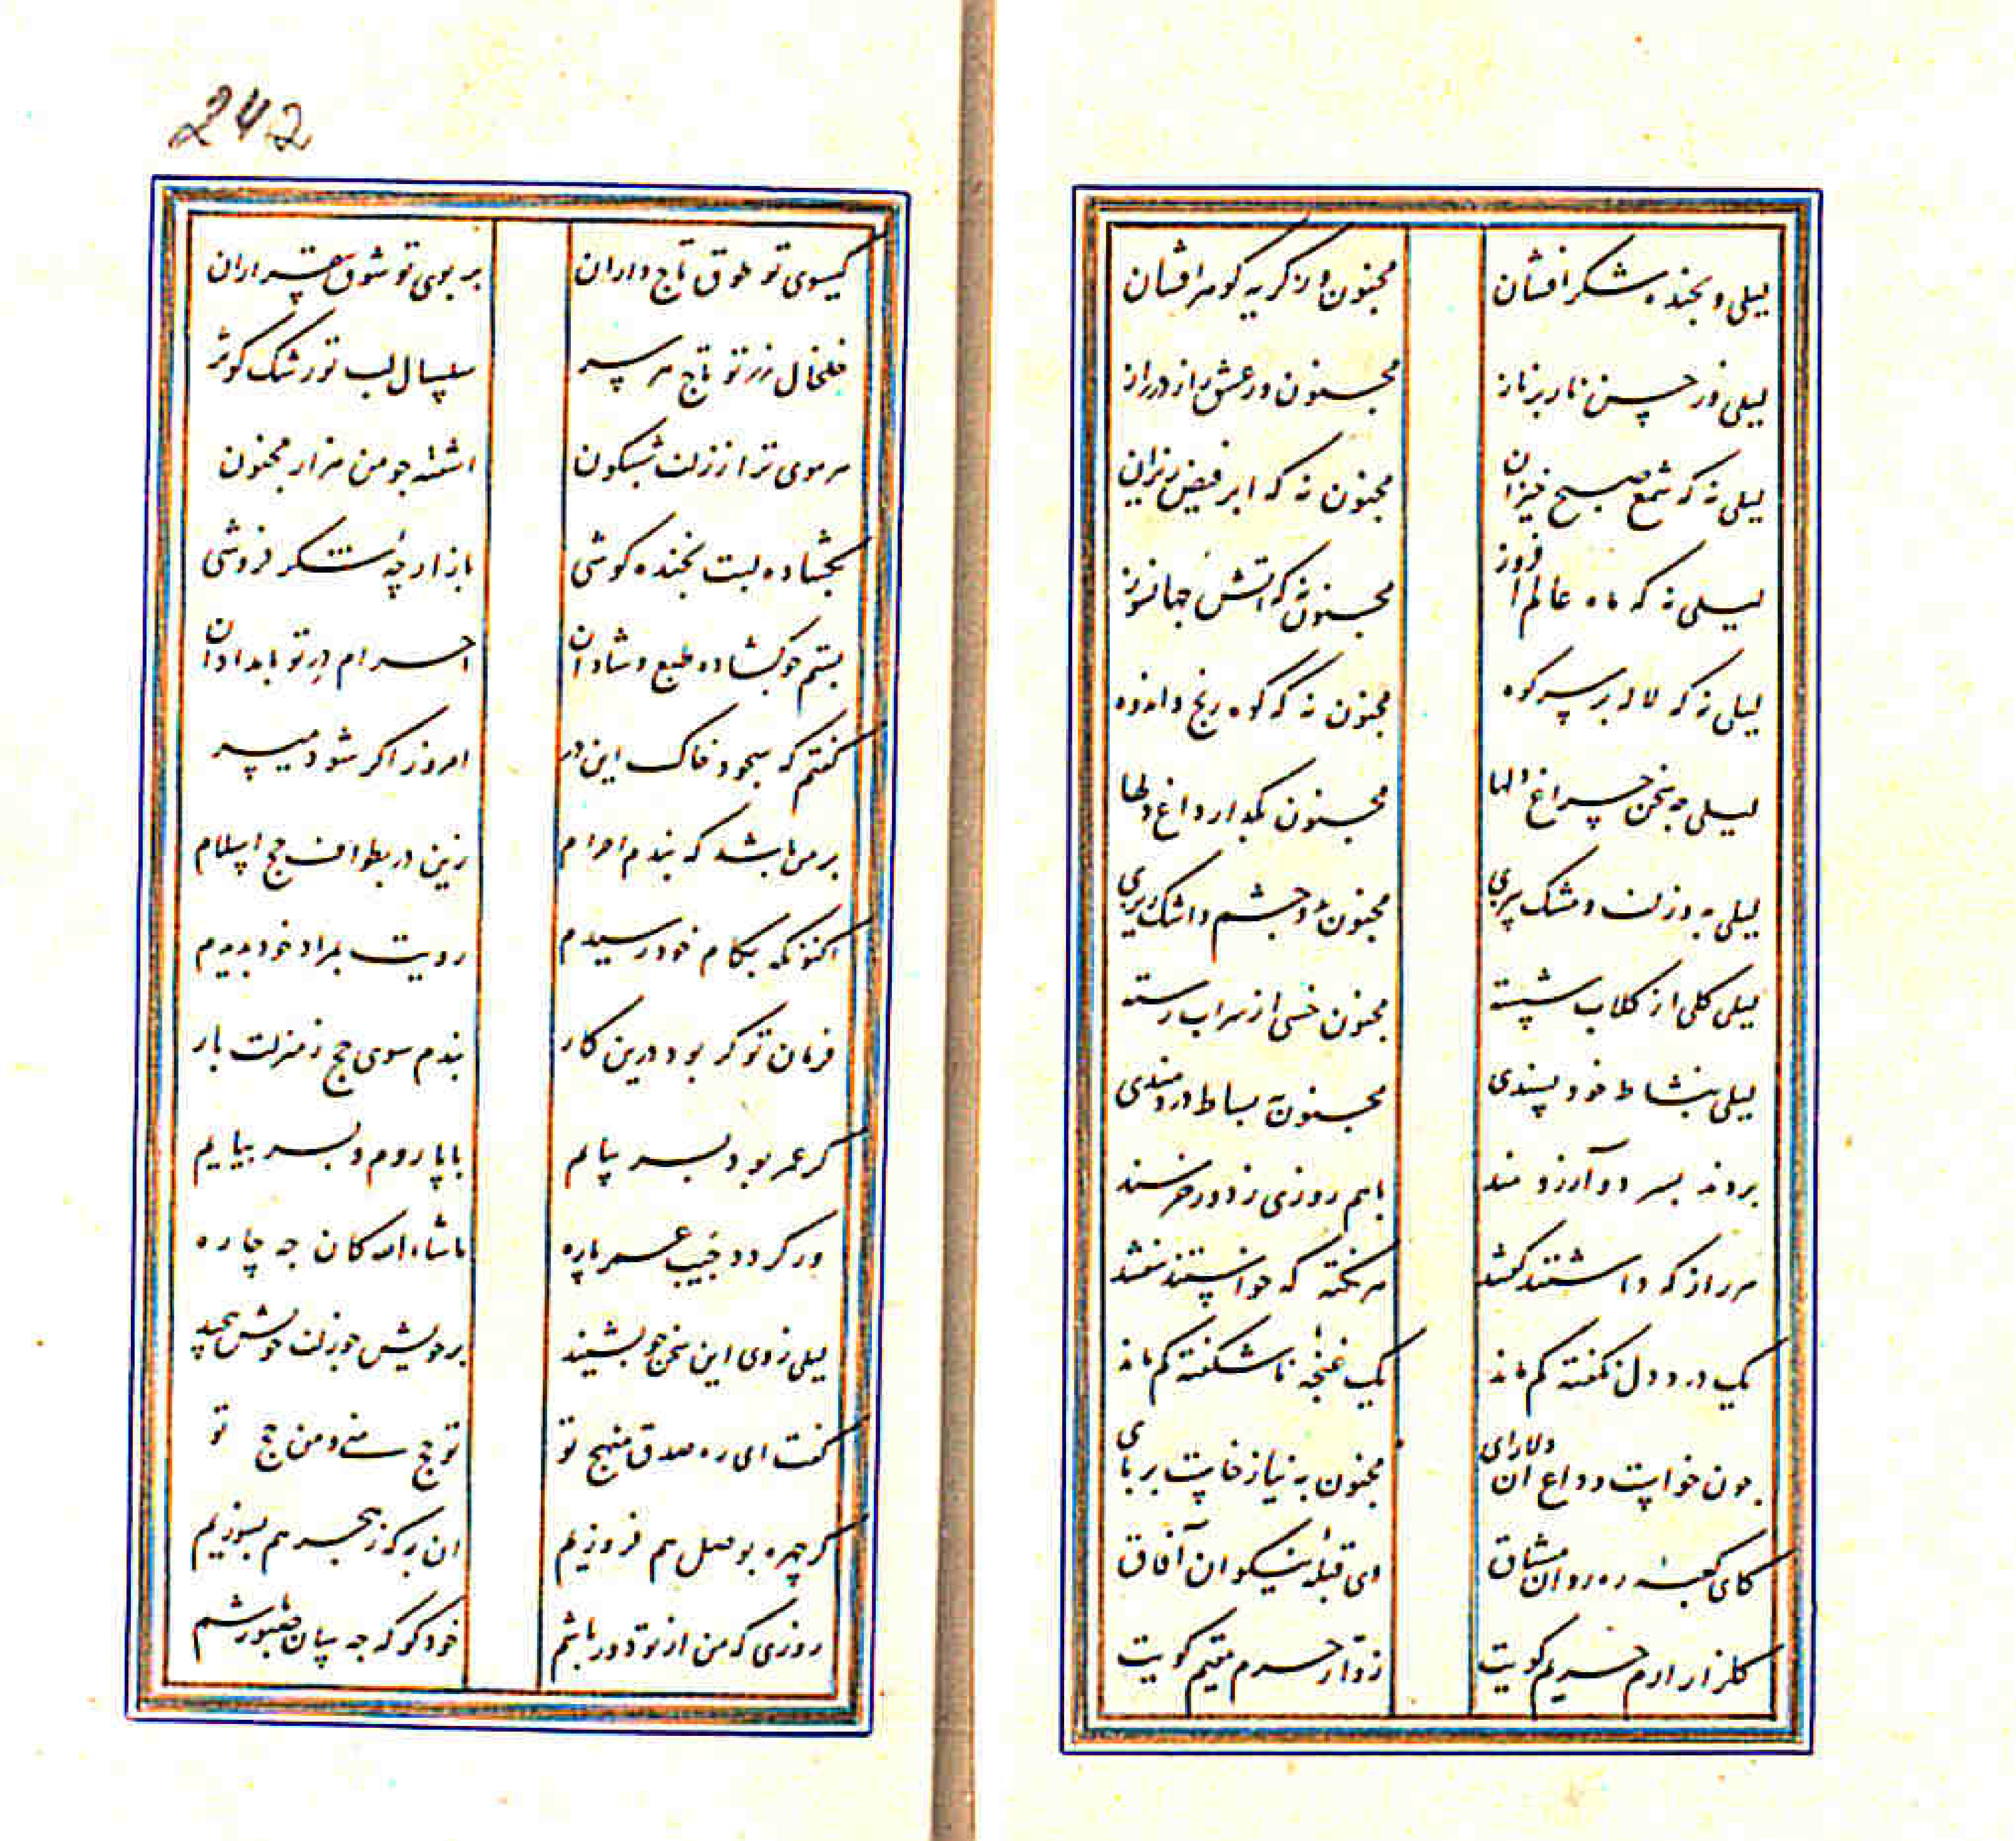 242
لیلی و بخنده شکر افشان	مجنون و ز گریه گوهر افشان
لیلی و ز حسن ناز بر ناز	مجنون و ز عشق راز در راز
لیلی نه که شمع صبح خیزان	مجنون نه که ابر فیض ریزان
لیلی نه که ماه عالم افروز	مجنون نه که آتش جهانسوز
لیلی نه که لاله بر سر کوه	مجنون نه که کوه رنج و اندوه
لیلی به سخن چراغ دلها	مجنون بگداز داغ دلها
لیلی به دو زلف و مشک بیزی	مجنون و دو چشم و اشک ریزی
لیلی گلی از گلاب شسته	مجنون خسی از سراب رسته
لیلی بنشاط خود پسندی	مجنون به بساط دردمندی
بردند بسر دو آرزومند	باهم روزی ز دور خرسند
هر راز که داشتند گفتند	هر نکته که خواستند سفتند
یک درد دل نگفته کم ماند	یک غنچه ناشکفته کم ماند
چون خواست وداع آن دلارای	مجنون به نیاز خاست بر پای
کای کعبه ره روان مشتاق	وی قبله نیکوان آفاق
گلزار ارم حریم کویت	زوار حرم مقیم کویت
گیسوی تو طوق تاج داران	بر بوی تو شوق بیقراران
خلخال زر تو تاج هر سر	سلسال لب تو رشک کوثر
هر موی ترا ز زلف شبگون	آشفته چو من هزار مجنون
بگشاده لبت بخنده کوشی	بازارچه شکر فروشی
بستم چو گشاده طبع و شادان	احرام در تو بامدادان
گفتم که سجود خاک این در	امروز اگر شود میسر
بر من باشد که بندم احرام	زین در بطواف حج اسلام
اکنونکه بکام خود رسیدم	رویت بمراد خود بدیدم
فرمان تو گر بود درین کار	بندم سوی حج ز منزلت بار
گر عمر بود بسر بپایم	با پا روم و بسر بیایم
ور گردد جیب عمر پاره	ماشاء الله کان چه چاره
لیلی ز وی این سخن چو بشنید	بر خویش چو زلف خویش پیچید
گفت ای ره صدق منهج تو	تو حج منی و من حج تو
گر چهره بوصل هم فروزیم	آن به که ز هجر هم بسوزیم
روزی که من از تو دور باشم	خود گو که چه سان صبور باشم